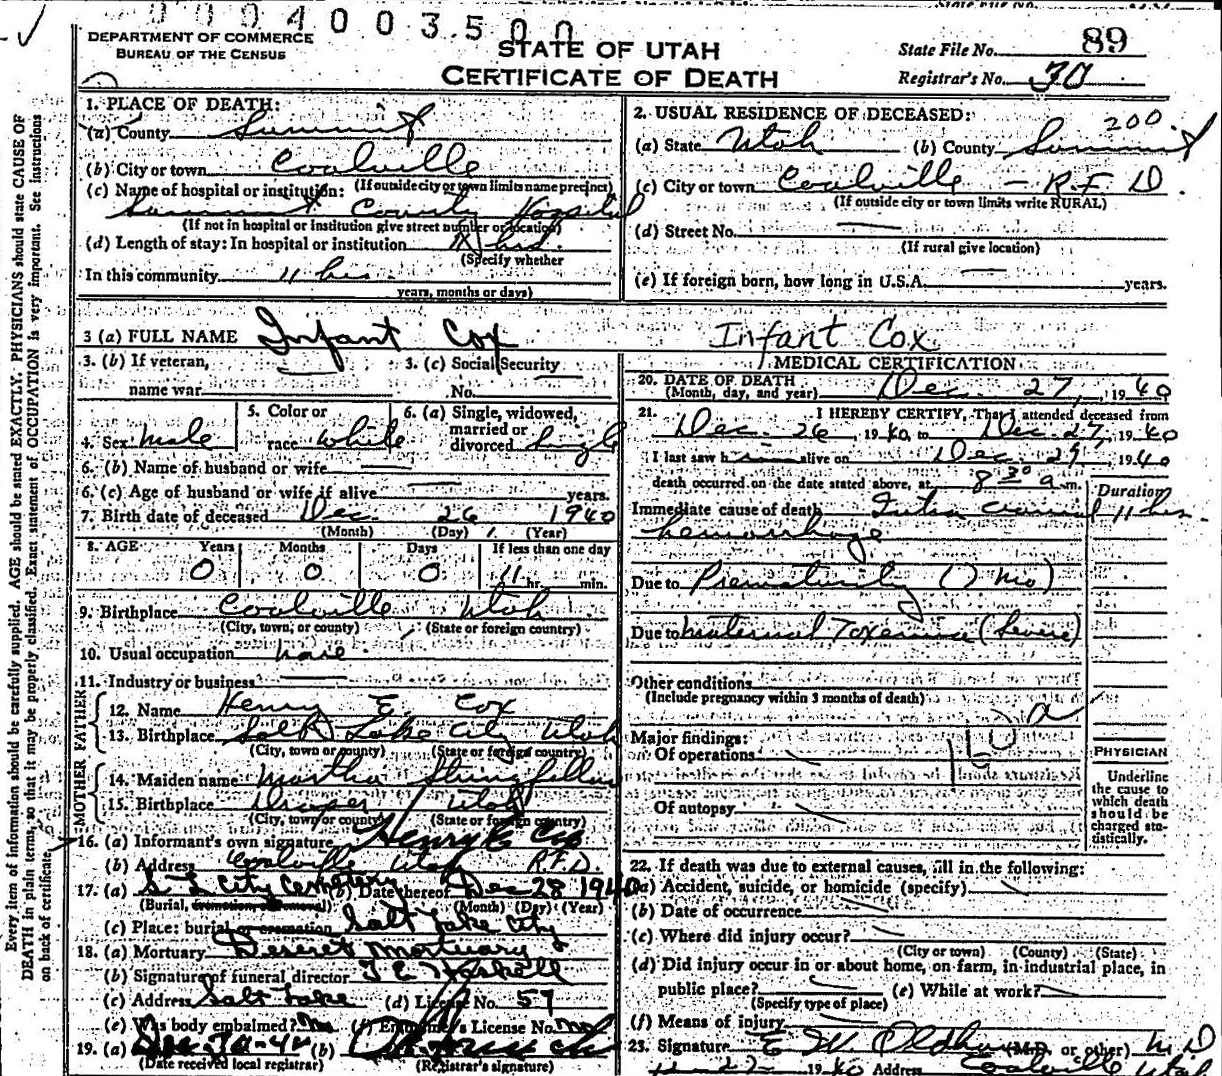 0004003500
DEPARTMENT OF COMMERCE
BUREAU OF THE CENSUS
STATE OF UTAH
CERTIFICATE OF DEATH
State File No. 89
Registrar's No. 30
Every item of information should be carefully supplied. AGE should be stated EXACTLY. PHYSICIANS should state CAUSE OF
DEATH in plain terms, so that it may be properly classified. Exact statement of OCCUPATION is very important. See instructions
on back of certificate.
1. PLACE OF DEATH:
(a) County Summit
(b) City or town Coalville
(If outside city or town limits name precinct)
(c) Name of hospital or institution:
Summit County Hospital
(If not in hospital or institution give street number or location)
(d) Length of stay: In hospital or institution hrs.
(Specify whether
In this community 11 hrs.
years, months or days)
2. USUAL RESIDENCE OF DECEASED:
200
(a) State Utah (b) County Summit
(c) City or town Coalville - R.F.D.
(If outside city or town limits write RURAL)
(d) Street No.
(If rural give location)
(e) If foreign born, how long in U.S.A. years.
3 (a) FULL NAME Infant Cox Infant Cox
3. (b) If veteran,
name war
3. (c) Social Security
No.
4. Sex male
5. Color or
race white
6. (a) Single, widowed,
married or
divorced Single
6. (b) Name of husband or wife
6. (c) Age of husband or wife if alive years.
7. Birth date of deceased Dec. 26 1940
(Month) (Day) (Year)
8. AGE Years Months Days If less than one day
0 0 0 11 hr. min.
9. Birthplace Coalville Utah
(City, town, or county) (State or foreign country)
10. Usual occupation none
11. Industry or business
FATHER
12. Name Henry E. Cox
13. Birthplace Salt Lake City Utah
(City, town or county) (State or foreign country)
MOTHER
14. Maiden name Martha Stringfellow
15. Birthplace Draper Utah
(City, town or county) (State or foreign country)
16. (a) Informant's own signature Henry E Cox
(b) Address Coalville Utah R.F.D.
17. (a) S. L. City Cemetery Date thereof Dec 28 1940
(Burial, cremation, or removal) (Month) (Day) (Year)
(c) Place: burial or cremation Salt Lake City
18. (a) Mortuary Deseret Mortuary
(b) Signature of funeral director
(c) Address Salt Lake (d) License No. 57
(e) Was body embalmed? No (f) Embalmer's License No.
19. (a) Dec-30-40 (b)
(Date received local registrar) (Registrar's signature)
MEDICAL CERTIFICATION
20. DATE OF DEATH
(Month, day, and year) Dec. 27, 1940
21. I HEREBY CERTIFY, That I attended deceased from
Dec. 26, 1940, to Dec. 27, 1940
I last saw him alive on Dec. 27, 1940
death occurred on the date stated above, at 8:30 a m.
Duration
Immediate cause of death Intra cranial 11 hrs.
hemorrhage
Due to Prematurity (7 mo)
Due to Maternal Toxemia (Severe)
Other conditions
(Include pregnancy within 3 months of death)
Major findings:
Of operations
Of autopsy
PHYSICIAN
Underline
the cause to
which death
should be
charged sta-
tistically.
22. If death was due to external causes, fill in the following:
(a) Accident, suicide, or homicide (specify)
(b) Date of occurrence
(c) Where did injury occur?
(City or town) (County) (State)
(d) Did injury occur in or about home, on farm, in industrial place, in
public place? (e) While at work?
(Specify type of place)
(f) Means of injury
23. Signature E. W. Oldham (M.D. or other) M.D
12-27- 1940 Address Coalville Utah